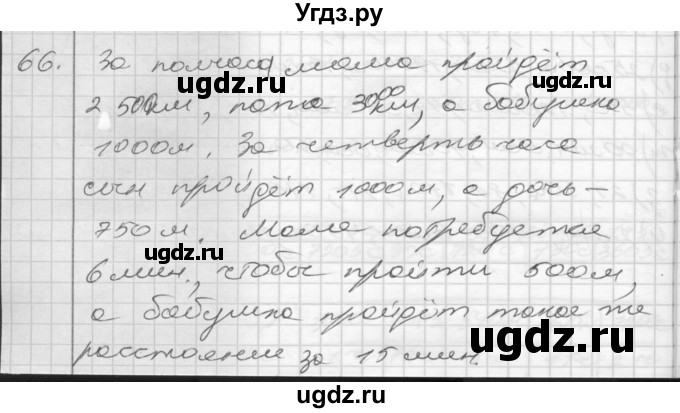 Угдз.ру
66. За полчаса мама пройдёт
2 500м, папа 3000м, а бабушка
1000м. За четверть часа
сын пройдёт 1000м, а дочь –
750 м. Маме потребуется
6 мин., чтобы пройти 500м,
а бабушка пройдёт такое же
расстояние за 15 мин.
ugdz.ru
ugdz.ru
ugdz.ru
ugdz.ru
ugdz.ru
ugdz.ru